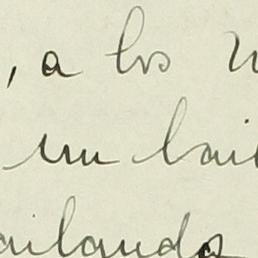 , a los
un bail
ailando